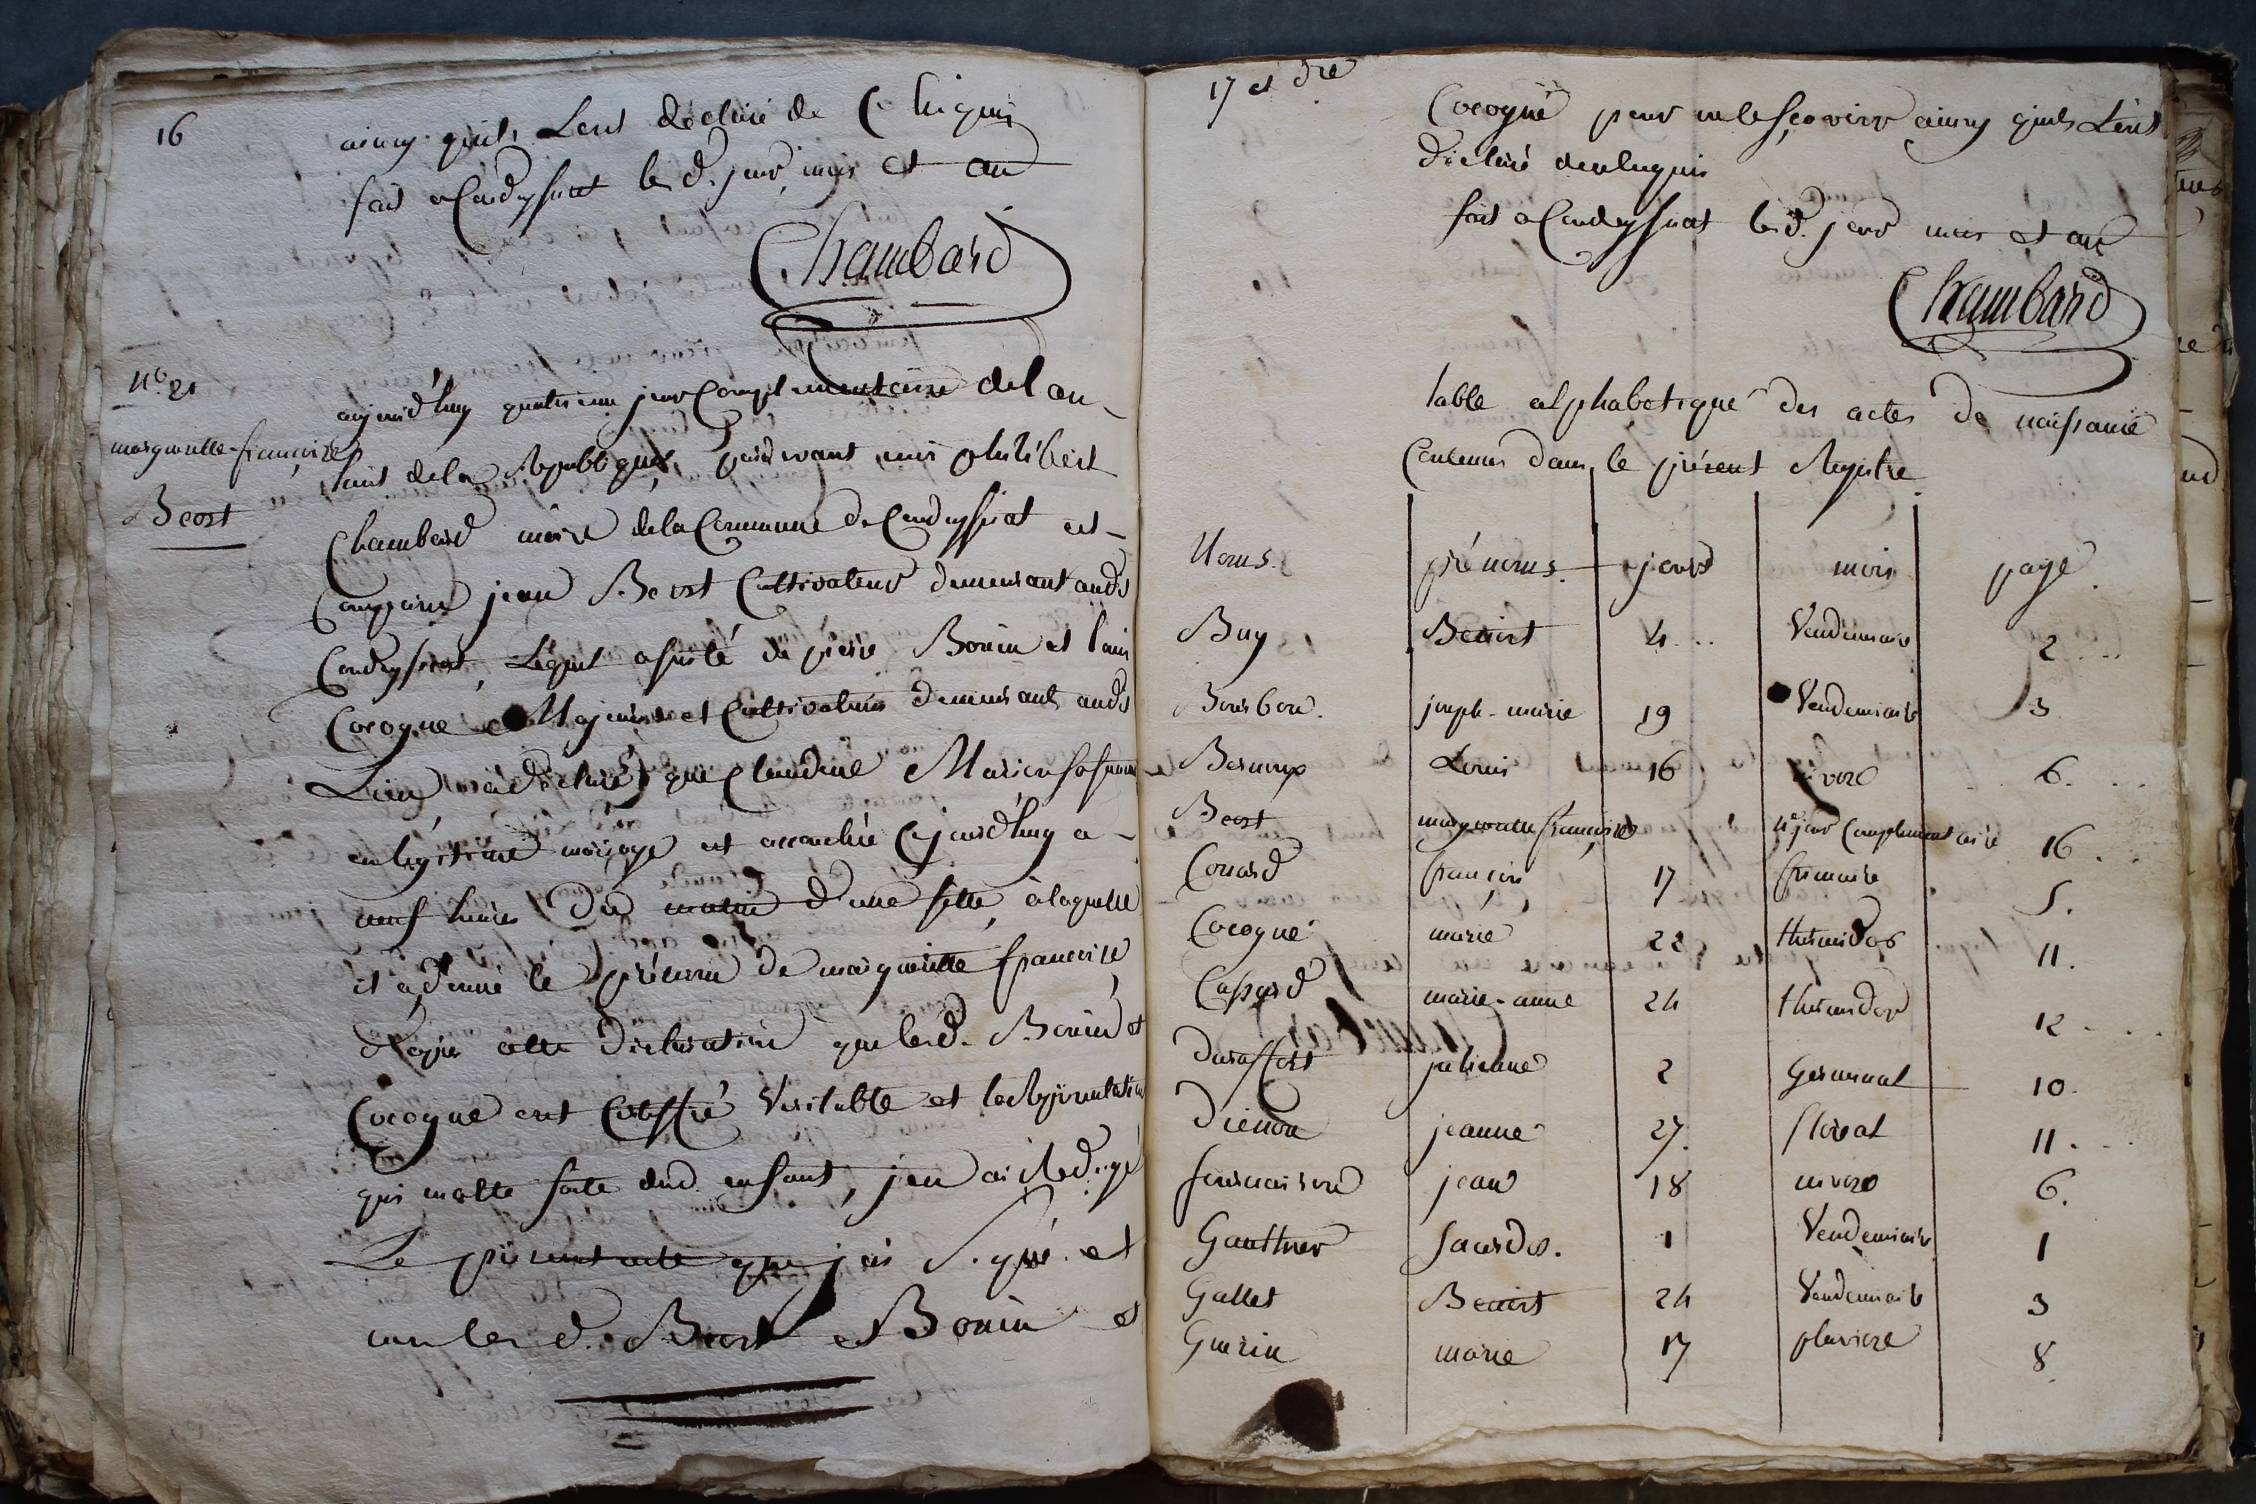 16
ainsy qu'ils L'ont déclaré de Ce Enquis
fait a Condeyssiat led. jour, mois et an
Chambard
N.º 21
margueritte-françoise
Beost
aujourd'huy quatrieme jour Complementaire del'an
huit dela Republique, pardevant moi philibert
Chambard maire dela Commune de Condeyssiat est
Comparu jean Beost Cultivateur demeurant aud.
Condeyssiat, Lequel assisté de pierre Bonin et
Cocogne Majeurs et Cultivateurs demeurants aud.
Lieu m'a déclaré que Claudine sa femme
en légitime mariage est accouchée Cejourd'huy a
neuf heures du matin d'une fille, à laquelle
il a donné le prénom de margueritte françoise,
d'après cette déclaration que lesd. Bonin et
Cocogne ont Certiffié Veritable et la Représentation
qui m'a été faite dud. enfant, j'en ai Redigé
Le présent acte que j'ai Signé et
non les d. Beost et Bonin et
17 et dre
Cocogne pour ne le sçavoir ainsy qu'ils L'ont
déclaré de ce Enquis
fait a Condeyssiat led. jour mois et an
Chambard
table alphabetique des actes de naissance
Contenus dans le présent Registre
Noms. prénoms. jours mois page.
Buy Benoit 4 Vendemiaire 2
Bourbon. joseph-marie 19 Vendemiaire 3
Louis 16 nivose 6.
Beost margueritte françoise 4e jour Complementaire 16.
Couard françois 17 frimaire 5.
Cocogne marie 22 thermidor 11.
Cassard marie-anne 24 thermidor 12
Duraffort julienne 2 Germinal 10.
Dienon jeanne 27. floréal 11.
fournaison jean 18 nivose 6.
Gauthier Sacerdos. 1 Vendemiaire 1
Gallet Benoit 24 Vendemiaire 3
Guerin marie 17 pluviose 8